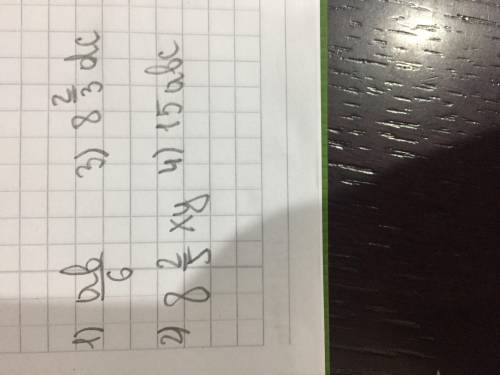 1) ab/6 3) 8 2/3 dc
2) 8 2/5 xy 4) 15abc